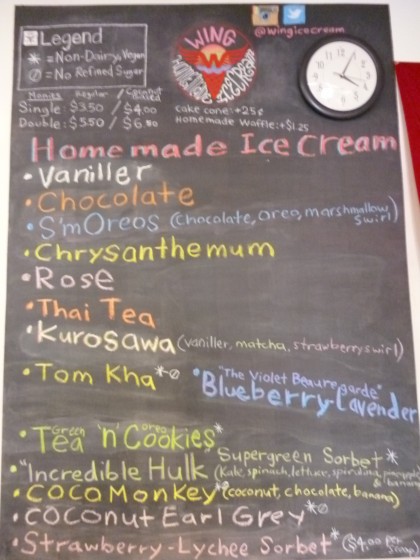 Legend
* = Non-Dairy, Vegan
∅ = No Refined Sugar
WING
HOMEMADE ICE CREAM
@wingicecream
Monies Regular / Coconut Based
Single: $3.50 / $4.00
Double: $5.50 / $6.50
cake cone: +25¢
Homemade Waffle: +$1.25
Homemade Ice Cream
• Vaniller
• Chocolate
• S'mOreos (chocolate, oreo, marshmallow swirl)
• Chrysanthemum
• Rose
• Thai Tea
• Kurosawa (vaniller, matcha, strawberry swirl)
• Tom Kha *∅
• "The Violet Beauregarde"
Blueberry-Lavender
• Green Tea 'n' Oreo Cookies *
Supergreen Sorbet *
• "Incredible Hulk (kale, spinach, lettuce, spirulina, pineapple & banana
• COCO Monkey *∅ (coconut, chocolate, banana)
• Coconut Earl Grey *∅
• Strawberry-Lychee Sorbet * ($4.00 per scoop)